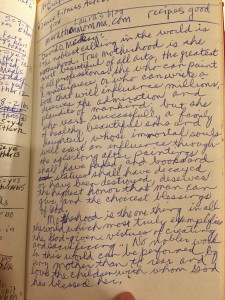 Laura's blog
recipes good
momma.com
"The noblest calling in the world is
that of mother. True motherhood is the
most beautiful of all arts, the greatest
of all professions. She who can paint
a masterpiece, or who can write a
book that will influence millions,
deserves the admiration and
plaudits of mankind; but she
who rears successfully a family
of healthy, beautiful sons and
daughters whose immortal souls
will exert an influence through-
out the ages long after paintings
shall have faded, and books and
statues shall have decayed
or have been destroyed, deserves
the highest honor that man can
give and the choicest blessings
of God.
"Motherhood is the one thing in all
the world which most truly exemplifies
the God-given virtues of creating
and sacrificing." No nobler work
in this world can be performed by
any mother than to rear and
love the children with whom God
has blessed her.